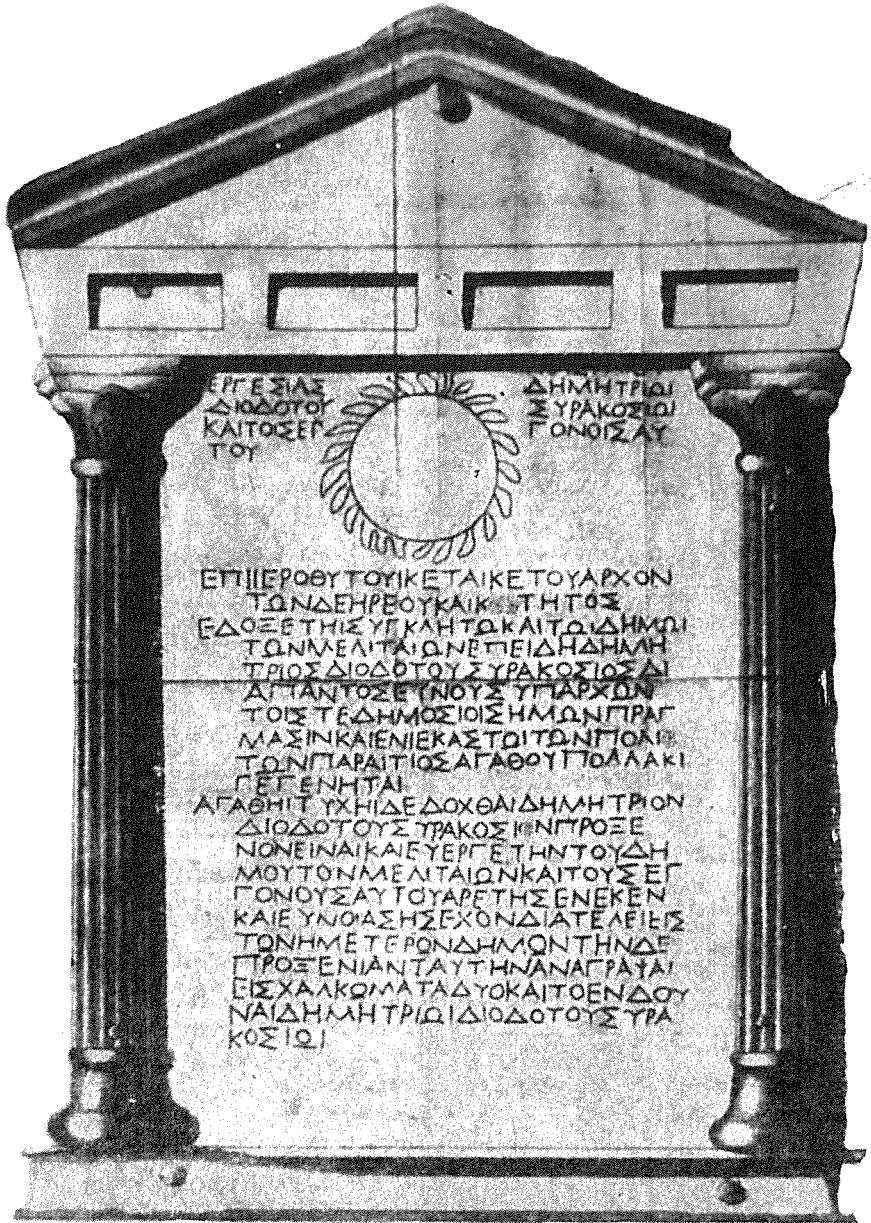 ΕΡΓΕΣΙΑΣ ΔΗΜΗΤΡΙΩΙ
ΔΙΟΔΟΤΟΥ ΣΥΡΑΚΟΣΙΩΙ
ΚΑΙΤΟΙΣΕΓ ΓΟΝΟΙΣΑΥ
ΤΟΥ
ΕΠΙΙΕΡΟΘΥΤΟΥΙΚΕΤΑΙΚΕΤΟΥΑΡΧΟΝ
ΤΩΝΔΕΗΡΕΟΥΚΑΙΚ ΤΗΤΟΣ
ΕΔΟΞΕΤΗΙΣΥΓΚΛΗΤΩΚΑΙΤΩΙΔΗΜΩΙ
ΤΩΝΜΕΛΙΤΑΙΩΝΕΠΕΙΔΗΔΗΜΗ
ΤΡΙΟΣΔΙΟΔΟΤΟΥΣΥΡΑΚΟΣΙΟΣΔΙ
ΑΠΑΝΤΟΣΕΥΝΟΥΣΥΠΑΡΧΩΝ
ΤΟΙΣΤΕΔΗΜΟΣΙΟΙΣΗΜΩΝΠΡΑΓ
ΜΑΣΙΝΚΑΙΕΝΙΕΚΑΣΤΩΙΤΩΝΠΟΛΙ
ΤΩΝΠΑΡΑΙΤΙΟΣΑΓΑΘΟΥΠΟΛΛΑΚΙ
ΓΕΓΕΝΗΤΑΙ
ΑΓΑΘΗΙΤΥΧΗΙΔΕΔΟΧΘΑΙΔΗΜΗΤΡΙΟΝ
ΔΙΟΔΟΤΟΥΣΥΡΑΚΟΣΙΟΝΠΡΟΞΕ
ΝΟΝΕΙΝΑΙΚΑΙΕΥΕΡΓΕΤΗΝΤΟΥΔΗ
ΜΟΥΤΟΝΜΕΛΙΤΑΙΩΝΚΑΙΤΟΥΣΕΓ
ΓΟΝΟΥΣΑΥΤΟΥΑΡΕΤΗΣΕΝΕΚΕΝ
ΚΑΙΕΥΝΟΙΑΣΗΣΕΧΟΝΔΙΑΤΕΛΕΙΕΙΣ
ΤΩΝΗΜΕΤΕΡΟΝΔΗΜΟΝΤΗΝΔΕ
ΠΡΟΞΕΝΙΑΝΤΑΥΤΗΝΑΝΑΓΡΑΨΑΙ
ΕΙΣΧΑΛΚΩΜΑΤΑΔΥΟΚΑΙΤΟΕΝΔΟΥ
ΝΑΙΔΗΜΗΤΡΙΩΙΔΙΟΔΟΤΟΥΣΥΡΑ
ΚΟΣΙΩΙ